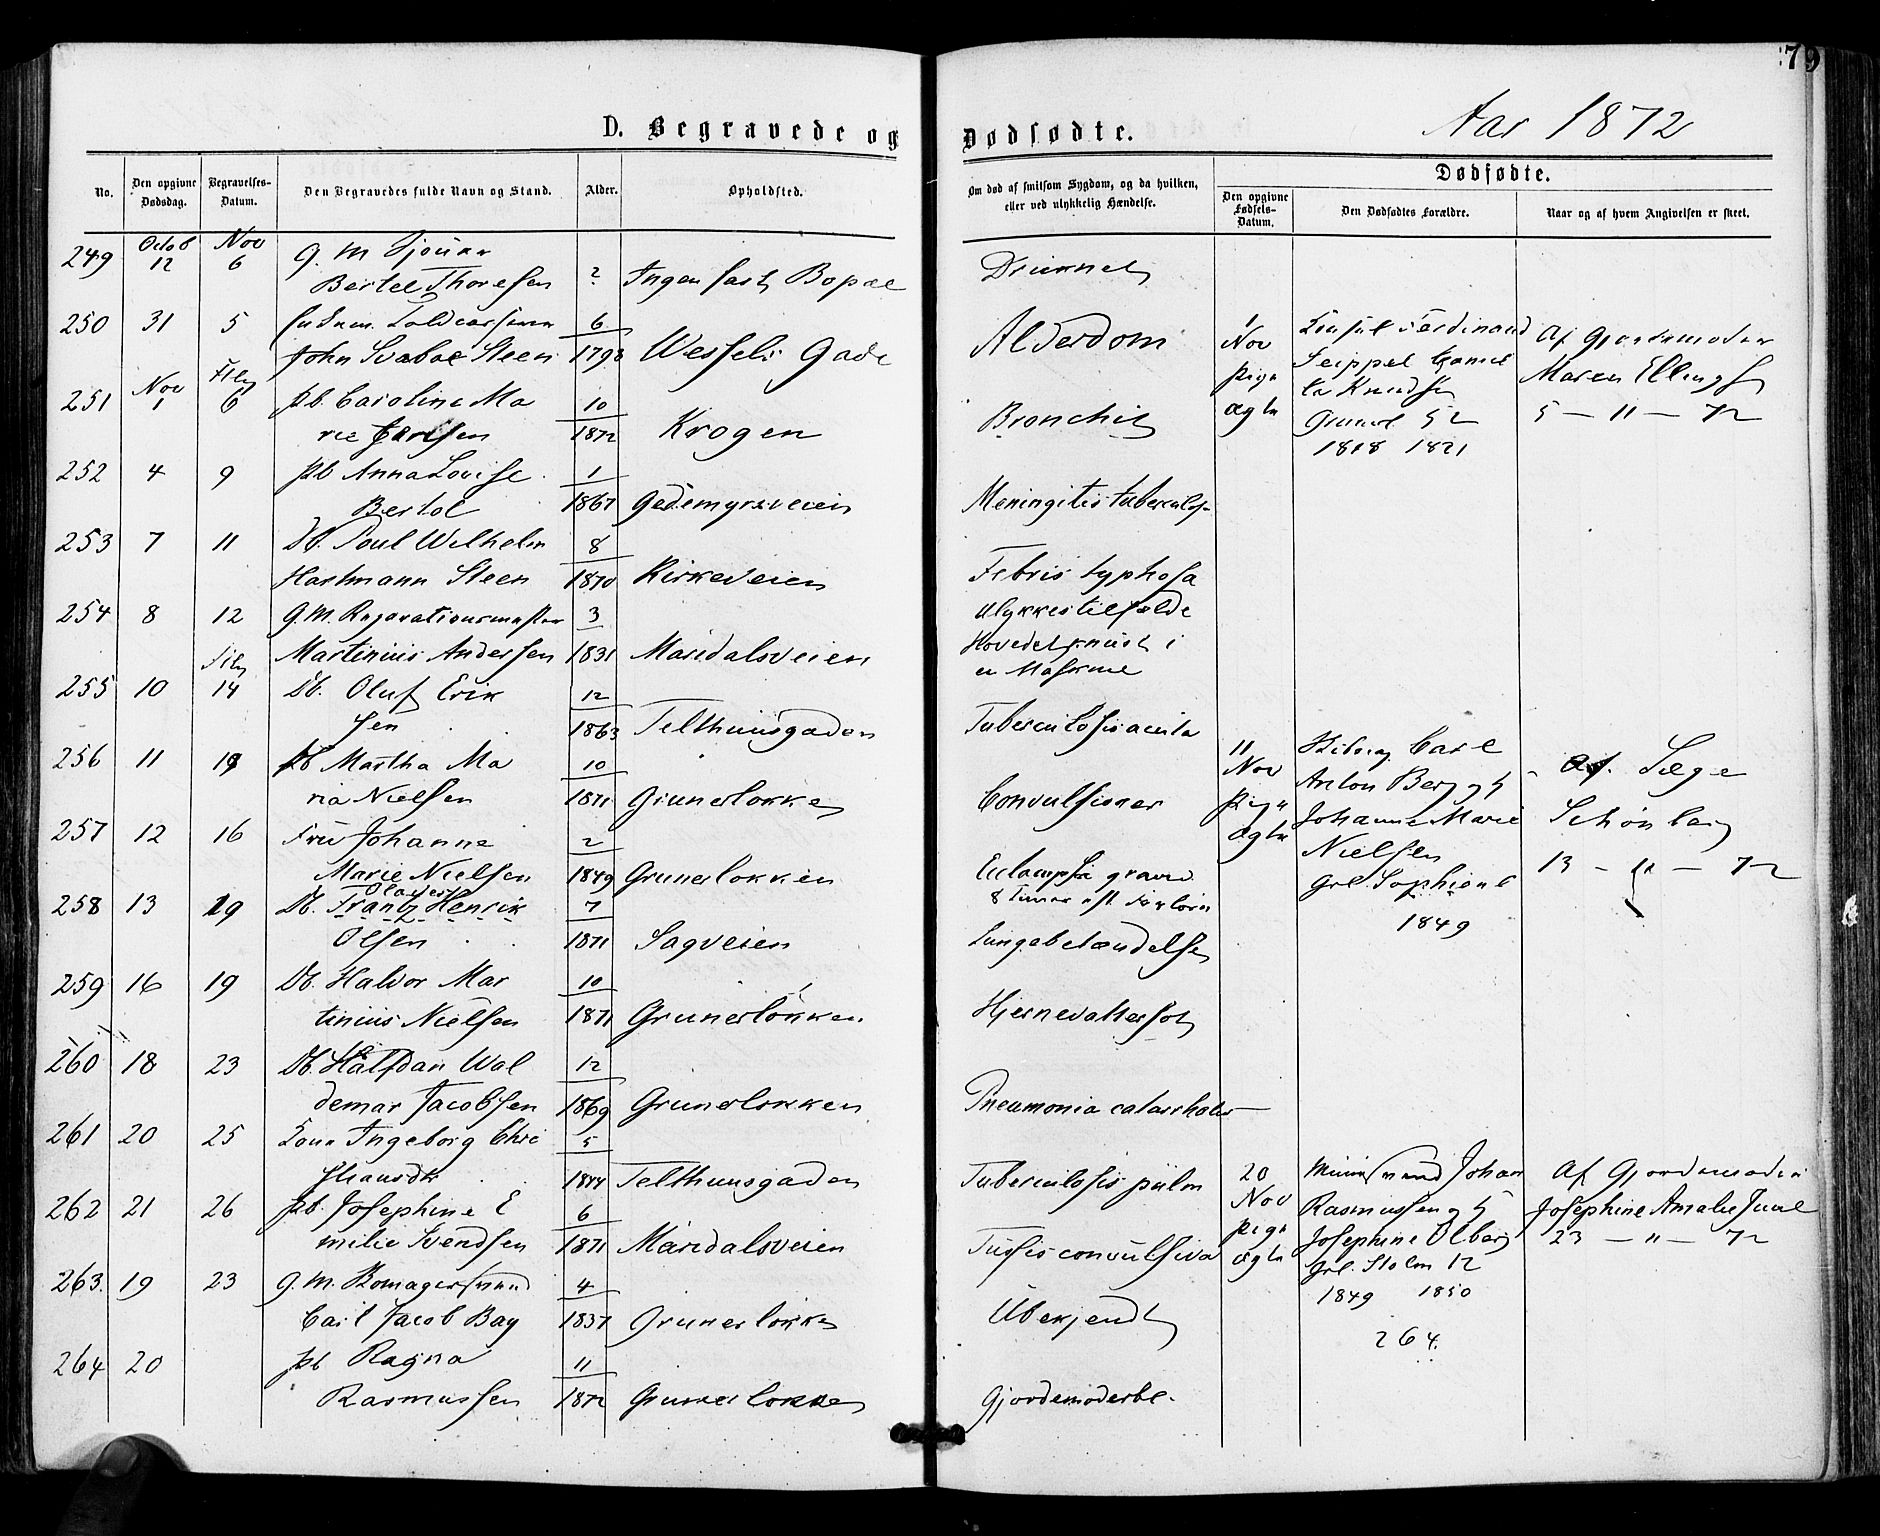 79
D. Begravede og Dødfødte.
Aar 1872
No.
Den opgivne Dødsdag.
Begravelses-Datum.
Den Begravedes fulde Navn og Stand.
Alder.
Opholdsted.
Om død af smitsom Sygdom, og da hvilken, eller ved ulykkelig Hændelse.
Dødfødte.
Den opgivne Fødsels-Datum.
Den Dødfødtes Forældre.
Naar og af hvem Angivelsen er skeet.
249 Octob 12 Nov 6 G. M
Bertel Thoresen ? Ingen fast Bopæl Druknet
250 31 5 6
John Svaboe Steen 1798 Wessels Gade Alderdom
251 Nov 1 6 Pb. Caroline Ma 10
rie 1872 Krogen Bronchit
252 4 9 Pb Anna Lovise 1
Bertol 1867 Gedemyrsveien Meningitis tuberculos
253 7 11 Db. Poul Wilhelm 8
Hartmann Steen 1870 Kirkeveien Febris typhosa
254 8 12 G. M. Reparationsmester 3 Ulykkestilfælde
Martinius Andersen 1831 Maridalsveien Hovedet knust i
en Maskine
255 10 14 Db. Oluf Erik 12
sen 1863 Telthuusgaden Tuberculosis acuta
256 11 19 Pb Martha Ma 10
ria Nielsen 1871 Grunerløkken Convulsioner
257 12 16 Fru Johanne 2
Marie Nielsen 1849 Grunerløkken Eclampsia gravid
8 Timer eft
258 13 19 Db. Frantz Henrik 7
Olsen 1871 Sagveien Lungebetændelse
259 16 19 Db. Halvor Mar 10
tinius Nielsen 1871 Grunerløkken Hjernevattersot
260 18 23 Db. Halfdan Wal 12
demar Jacobsen 1869 Grunerløkken Pneumonia catarrhalis
261 20 25 Kone Ingeborg Chri 5
stiansdtr 1844 Telthuusgaden Tuberculosis pulm
262 21 26 Pb. Josephine E 6
milie Svendsen 1871 Maridalsveien Tussis convulsiva
263. 19 23 G. M. 4
Carl Jacob Bay 1837 Grunerløkken Ubekjendt
264 20 Pb Ragna 11
Rasmussen 1872 Grunerløkken Gjordemoderbl.
1 Nov Pige ægte
Ferdinand
Seippel
Knudsen
Grunerl 52
1818 1821
Af Gjordemoder
Maren Ellingsen
5 – 11 – 72
11 Nov Pige ægte
Carl
Anton Berg og H
Johanne Marie
Nielsen
Grl. Sophienl
1849
Af. Læge
Schønberg
13 – " – 72
20 Nov Pige ægte
Johan
Rasmussen og H
Josephine Olberg
Grl. Stolm 12
1849 1850
Af Gjordemoder
Josephine Amalie Juul
23 – " – 72
264.